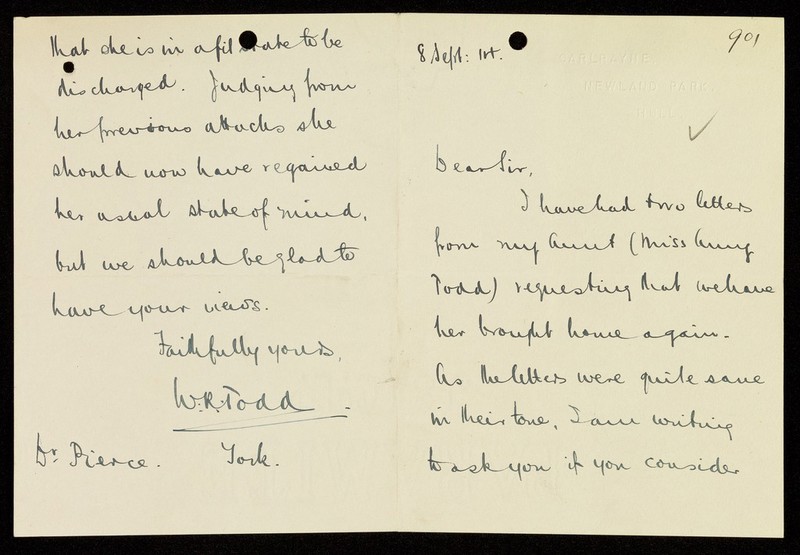 901
8 Sept: 1st.
NEWLAND PARK,
Dear Sir,
I have had two letters
from my Aunt (Miss Amy
Todd) requesting that we have
her brought home again.
As the letters were quite sane
in their tone, I am writing
to ask you if you consider
that she is in a fit state to be
discharged. Judging from
her previous attacks she
should now have regained
her usual state of mind,
but we should be glad to
have your views.
Faithfully yours,
W.R. Todd.
Dr Pierce. York.